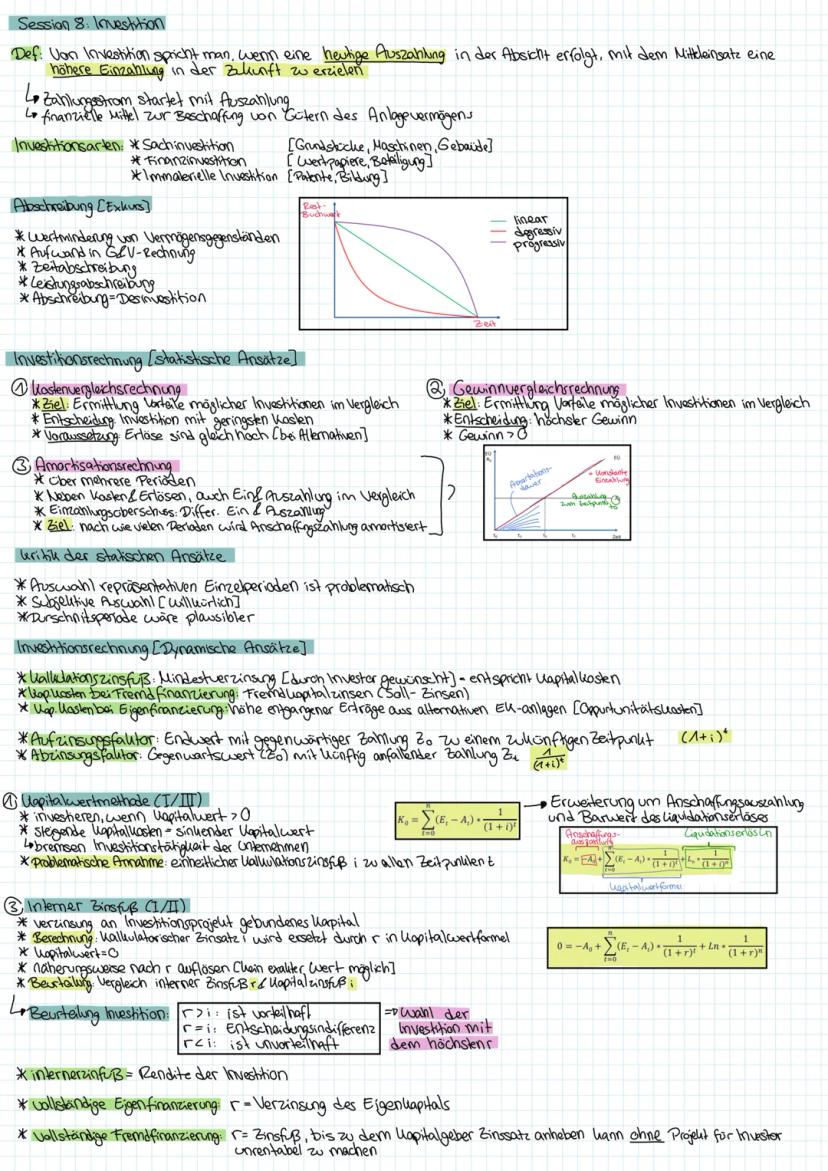 Session 8: Investition
Def: Von Investition spricht man, wenn eine heutige Auszahlung in der Absicht erfolgt, mit dem Mitteleinsatz eine
höhere Einzahlung in der Zukunft zu erzielen
↳ Zahlungsstrom startet mit Auszahlung
↳ finanzielle Mittel zur Beschaffung von Gütern des Anlagevermögens
Investitionsarten: * Sachinvestition [Grundstücke, Maschinen, Gebäude]
* Finanzinvestition [Wertpapiere, Beteiligung]
* Immaterielle Investition [Patente, Bildung]
Abschreibung [Exkurs]
* Wertminderung von Vermögensgegenständen
* Aufwand in G&V-Rechnung
* Zeitabschreibung
* Leistungsabschreibung
* Abschreibung = Desinvestition
Rest-
Buchwert
linear
degressiv
progressiv
Zeit
Investitionsrechnung [statistische Ansätze]
① Kostenvergleichsrechnung
* Ziel: Ermittlung Vorteile möglicher Investitionen im Vergleich
* Entscheidung: Investition mit geringsten Kosten
* Voraussetzung: Erlöse sind gleich hoch [bei Alternativen]
② Gewinnvergleichsrechnung
* Ziel: Ermittlung Vorteile möglicher Investitionen im Vergleich
* Entscheidung: höchster Gewinn
* Gewinn > 0
③ Amortisationsrechnung
* Über mehrere Perioden
* Neben Kosten & Erlösen, auch Ein & Auszahlung im Vergleich
* Einzahlungsüberschuss: Differ. Ein & Auszahlung
* Ziel: nach wie vielen Perioden wird Anschaffungszahlung amortisiert
Amortisations-
dauer
= konstante
Einzahlung
Auszahlung
zum Zeitpunkt
t₀
Zeit
Kritik der statischen Ansätze
* Auswahl repräsentativen Einzelperioden ist problematisch
* Subjektive Auswahl [willkürlich]
* Durschnitsperiode wäre plausibler
Investitionsrechnung [Dynamische Ansätze]
* Kalkulationszinsfuß: Mindestverzinsung [durch Investor gewünscht] = entspricht Kapitalkosten
* Kap.kosten bei Fremdfinanzierung: Fremdkapitalzinsen (Soll-Zinsen)
* Kap.kosten bei Eigenfinanzierung: höhe entgangener Erträge aus alternativen EK-anlagen [Oppurtunitätskosten]
* Aufzinsungsfaktor: Endwert mit gegenwärtiger Zahlung Z₀ zu einem zukünftigen Zeitpunkt (1+i)ᵗ
* Abzinsungsfaktor: Gegenwartswert (Z₀) mit künftig anfallender Zahlung Zₜ 1/(1+i)ᵗ
① Kapitalwertmethode (I/III)
* investieren, wenn Kapitalwert > 0
* steigende Kapitalkosten = sinkender Kapitalwert
↳ bremsen Investitionstätigkeit der Unternehmen
* Problematische Annahme: einheitlicher Kalkulationszinsfuß i zu allen Zeitpunkten t
K₀ = ∑ⁿₜ₌₀ (Eₜ − Aₜ) * 1/(1 + i)ᵗ
→ Erweiterung um Anschaffungsauszahlung
und Barwert des Liquidationserlöses
Anschaffungs-
auszahlung
Liquidationserlös Ln
K₀ = −A₀ + ∑ⁿₜ₌₀ (Eₜ − Aₜ) * 1/(1 + i)ᵗ + Lₙ * 1/(1 + i)ⁿ
Kapitalwertformel
③ Interner Zinsfuß (I/II)
* verzinsung an Investitionsprojekt gebundenes Kapital
* Berechnung: Kalkulatorischer Zinsatz i wird ersetzt durch r in Kapitalwertformel
* Kapitalwert = 0
* näherungsweise nach r auflösen [kein exakter Wert möglich]
* Beurteilung: Vergleich interner Zinsfuß r & Kapitalzinsfuß i
0 = −A₀ + ∑ⁿₜ₌₀ (Eₜ − Aₜ) * 1/(1 + r)ᵗ + Ln * 1/(1 + r)ⁿ
↳ Beurteilung Investition:
r > i: ist vorteilhaft
r = i: Entscheidungsindifferenz
r < i: ist unvorteilhaft
⇒ Wahl der
Investition mit
dem höchsten r
* interner zinfuß = Rendite der Investition
* vollständige Eigenfinanzierung: r = Verzinsung des Eigenkapitals
* vollständige Fremdfinanzierung: r = Zinsfuß, bis zu dem Kapitalgeber Zinssatz anheben kann ohne Projekt für Investor
unrentabel zu machen